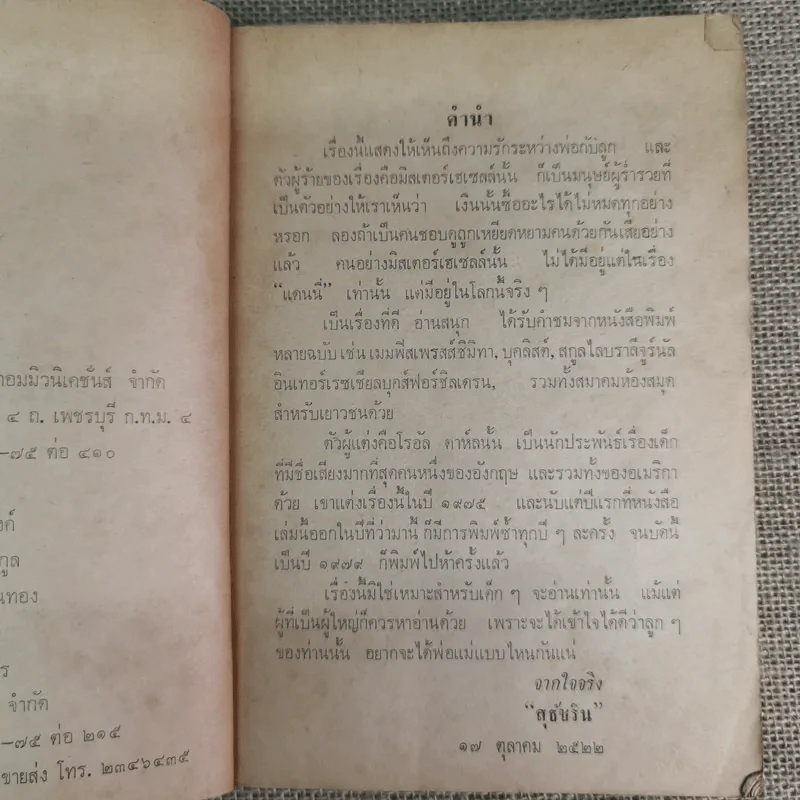 คอมมิวนิเคชั่นส์ จำกัด
๔ ถ. เพชรบุรี ก.ท.ม. ๔
–๗๕ ต่อ ๔๑๐
งค์
กูล
นทอง
ร
จำกัด
–๗๕ ต่อ ๒๑๕
ขายส่ง โทร. ๒๓๔๖๔๓๕
คำนำ
เรื่องนี้แสดงให้เห็นถึงความรักระหว่างพ่อกับลูก และ
ตัวผู้ร้ายของเรื่องคือมิสเตอร์เฮเซลล์นั้น ก็เป็นมนุษย์ผู้ร่ำรวยที่
เป็นตัวอย่างให้เราเห็นว่า เงินนั้นซื้ออะไรได้ไม่หมดทุกอย่าง
หรอก ลองถ้าเป็นคนชอบดูถูกเหยียดหยามคนด้วยกันเสียอย่าง
แล้ว คนอย่างมิสเตอร์เฮเซลล์นั้น ไม่ได้มีอยู่แต่ในเรื่อง
“แดนนี่” เท่านั้น แต่มีอยู่ในโลกนี้จริง ๆ
เป็นเรื่องที่ดี อ่านสนุก ได้รับคำชมจากหนังสือพิมพ์
หลายฉบับ เช่น เมมฟิสเพรสส์ซิมิทา, บุคลิสต์, สกูลไลบรารีจูร์นัล
อินเทอร์เรซเชียลบุคส์ฟอร์ชิลเดรน, รวมทั้งสมาคมห้องสมุด
สำหรับเยาวชนด้วย
ตัวผู้แต่งคือโรอัล ดาห์ลนั้น เป็นนักประพันธ์เรื่องเด็ก
ที่มีชื่อเสียงมากที่สุดคนหนึ่งของอังกฤษ และรวมทั้งของอเมริกา
ด้วย เขาแต่งเรื่องนี้ในปี ๑๙๗๕ และนับแต่ปีแรกที่หนังสือ
เล่มนี้ออกในปีที่ว่ามานี้ ก็มีการพิมพ์ซ้ำทุกปี ๆ ละครั้ง จนบัดนี้
เป็นปี ๑๙๗๙ ก็พิมพ์ไปห้าครั้งแล้ว
เรื่องนี้มิใช่เหมาะสำหรับเด็ก ๆ จะอ่านเท่านั้น แม้แต่
ผู้ที่เป็นผู้ใหญ่ก็ควรหาอ่านด้วย เพราะจะได้เข้าใจได้ดีว่าลูก ๆ
ของท่านนั้น อยากจะได้พ่อแม่แบบไหนกันแน่
จากใจจริง
“สุธัชริน”
๑๗ ตุลาคม ๒๕๒๒